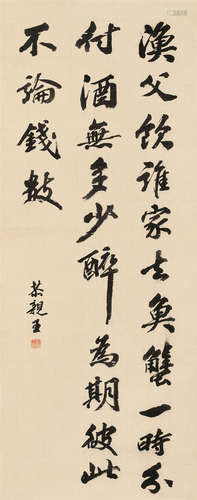 漁父飲誰家去魚蟹一時分
付酒無多少醉為期彼此
不論錢數
恭親王